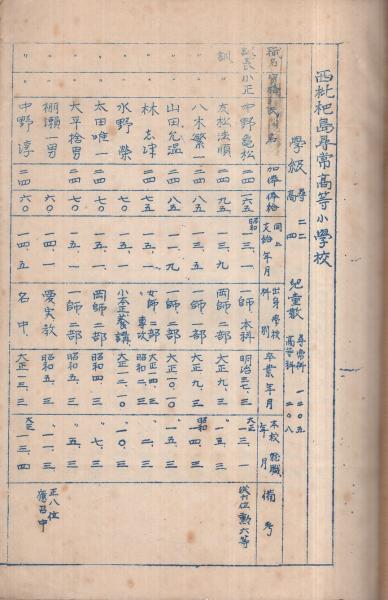 西枇杷島尋常高等小学校
学級 尋 二二 高 四 児童数 尋常科 一二〇五 高等科 二〇八
職名 資格 氏名 加俸 俸給 同上支給年月 出身学校科別 卒業年月 本校就職年月 備考
訓長 小正 中野亀松 二四 六五 昭和一三、一 一師 本科 明治三七、三 大正一三、一 勲六等
訓 〃 友松法順 二四 九五 一三、九 岡師 二部 大正九、三 〃一五、三
〃 〃 八木繁一 二四 八五 一三、五 一師 一部 大正九、三 昭和一四、三
〃 〃 山田允温 二四 八五 一一、九 一師、二部 大正一〇、一〇 〃一五、三
〃 〃 林 二四 七五 一五、一 女師 二部 専攻 大正一四、三 昭和二、三 〃二、三
〃 〃 水野 榮 二四 七〇 一五、一 小本正 養講 大正一二、一〇 〃一〇、三
〃 〃 太田唯一 二四 七〇 一五、一 岡師 二部 昭和四、三 〃七、三
〃 〃 大平捨男 二四 七〇 一五、一 一師 二部 昭和五、三 〃五、三
〃 〃 棚瀬一男 二四 六〇 一四、一 愛実教 昭和五、三 〃一一、三 正八位 應召中
〃 〃 中野 淳 二四 六〇 一四、五 名中、 大正一三、三 大正一三、四